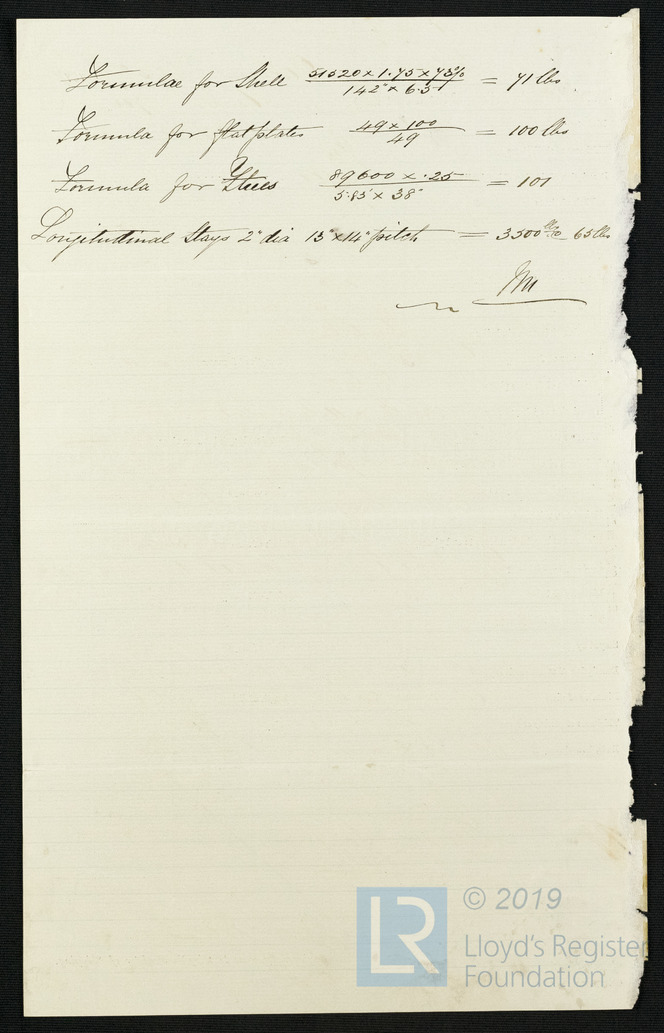 Formulae for Shell 51520 x 1.75 x 73% / 142" x 6.5 = 71 lbs
Formula for flat plates 49 x 100 / 49 = 100 lbs
Formula for Flues 89600 x .25 / 5.83' x 38" = 101
Longitudinal Stays 2" dia 15" x 14" pitch = 3500 65 lbs
© 2019
LR
Lloyd's Register
Foundation